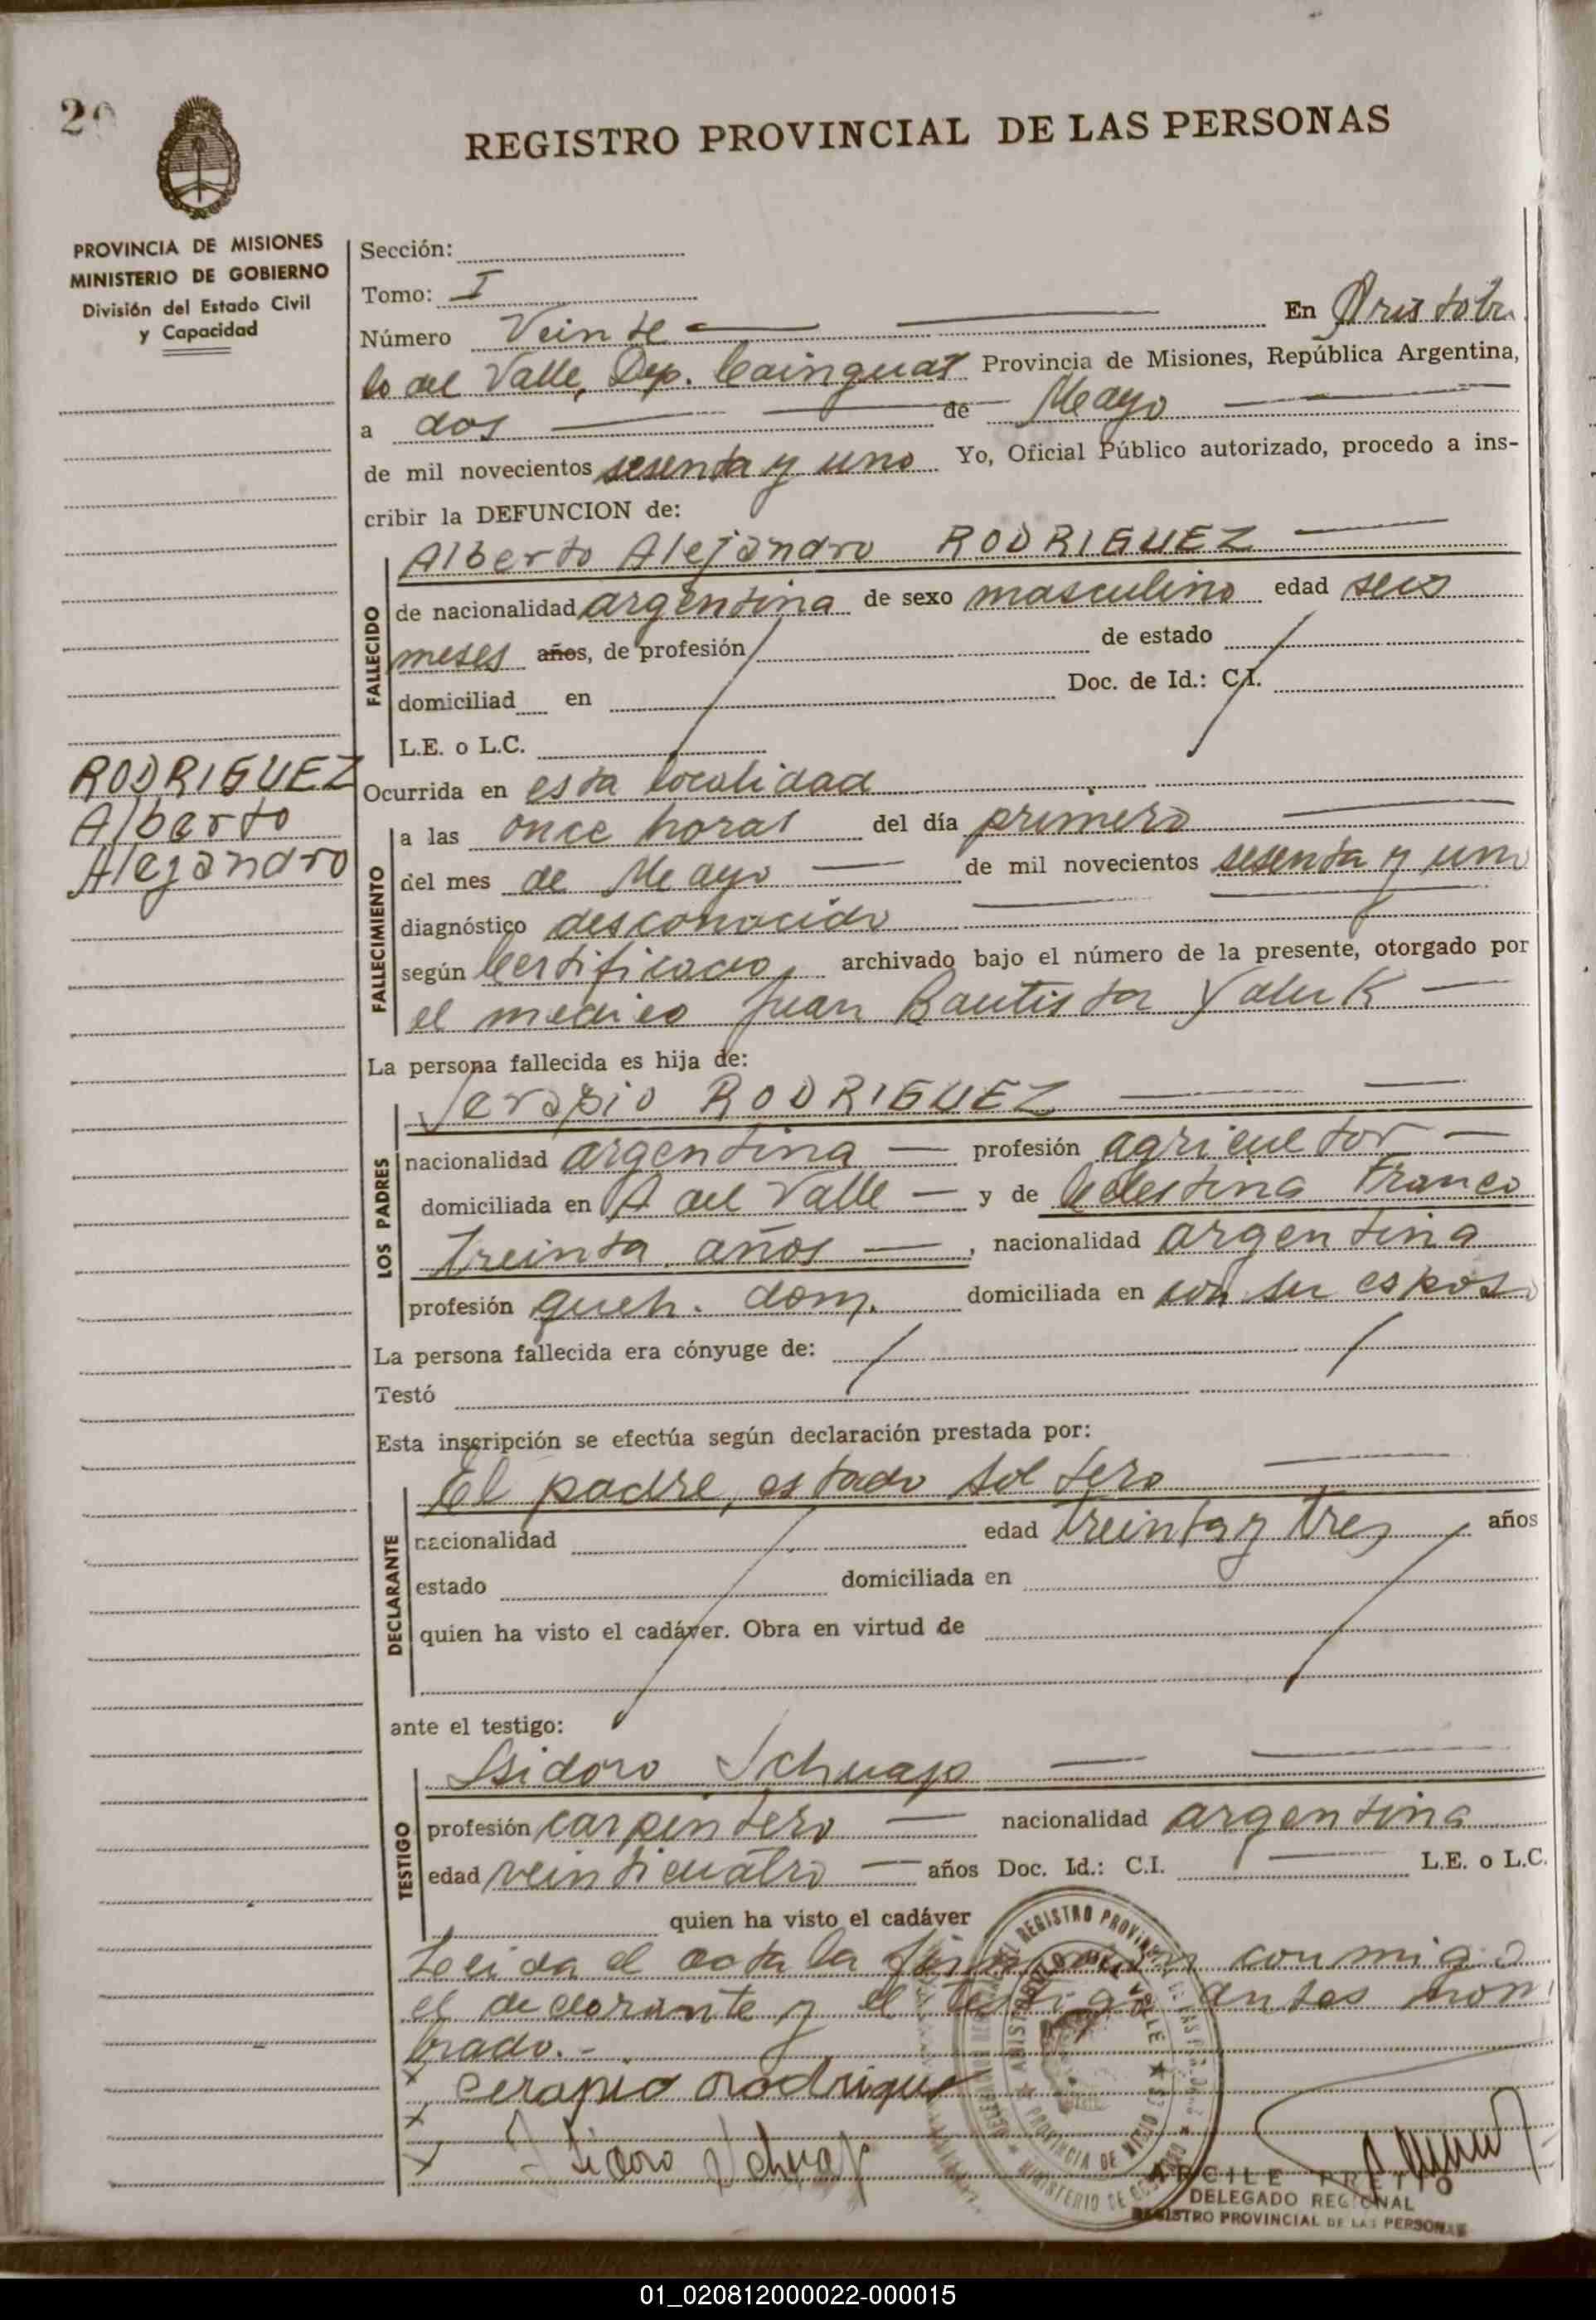 20
REGISTRO PROVINCIAL DE LAS PERSONAS
PROVINCIA DE MISIONES
MINISTERIO DE GOBIERNO
División del Estado Civil
y Capacidad
Sección:
Tomo: I
Número Veinte En Aristobu
lo del Valle, Dep. Cainguas Provincia de Misiones, República Argentina,
a dos de Mayo
de mil novecientos sesenta y uno Yo, Oficial Público autorizado, procedo a ins-
cribir la DEFUNCION de:
FALLECIDO
Alberto Alejandro RODRIGUEZ
de nacionalidad argentina de sexo masculino edad seis
meses años, de profesión de estado
domiciliad en Doc. de Id.: C.I.
L.E. o L.C.
RODRIGUEZ
Alberto
Alejandro
Ocurrida en esta localidad
FALLECIMIENTO
a las once horas del día primero
del mes de Mayo de mil novecientos sesenta y uno
diagnóstico desconocido
según Certificado, archivado bajo el número de la presente, otorgado por
el medico Juan Bautista Yaluk
La persona fallecida es hija de:
LOS PADRES
Serapio RODRIGUEZ
nacionalidad argentina profesión agricultor
domiciliada en A del Valle y de Celestina Franco
treinta años , nacionalidad argentina
profesión queh. dom. domiciliada en con su esposo
La persona fallecida era cónyuge de:
Testó
Esta inscripción se efectúa según declaración prestada por:
DECLARANTE
El padre, estado soltero
nacionalidad edad treinta y tres años
estado domiciliada en
quien ha visto el cadáver. Obra en virtud de
ante el testigo:
TESTIGO
Isidoro Schuap
profesión carpintero nacionalidad argentina
edad veinticuatro años Doc. Id.: C.I. L.E. o L.C.
quien ha visto el cadáver
Leida el acta la firman conmigo
el declarante y el testigo antes nom
brado.-
x serapio rodrigues
x
x Isidoro Schuap
ARCILE PRETTO
DELEGADO REGIONAL
REGISTRO PROVINCIAL DE LAS PERSONAS
01_020812000022-000015